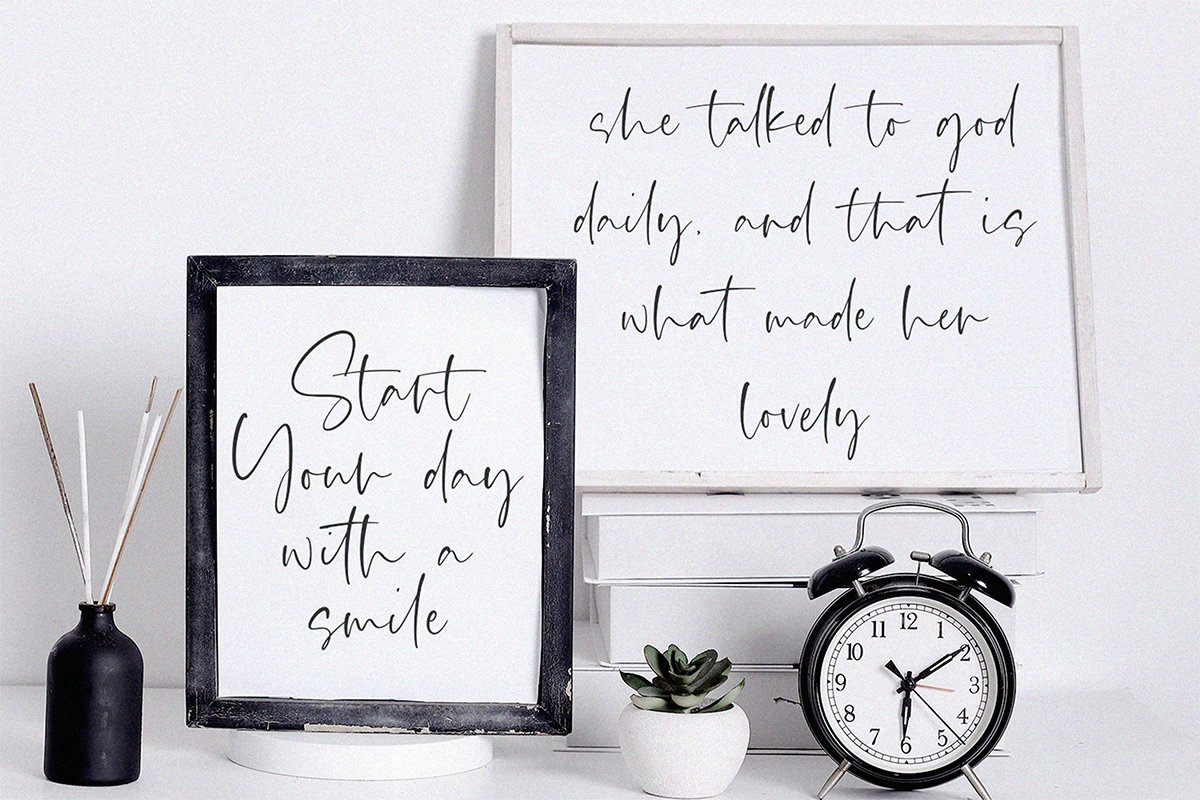 she talked to god
daily, and that is
what made her
lovely
Start
Your day
with a
smile
12
1
2
3
4
5
6
7
8
9
10
11